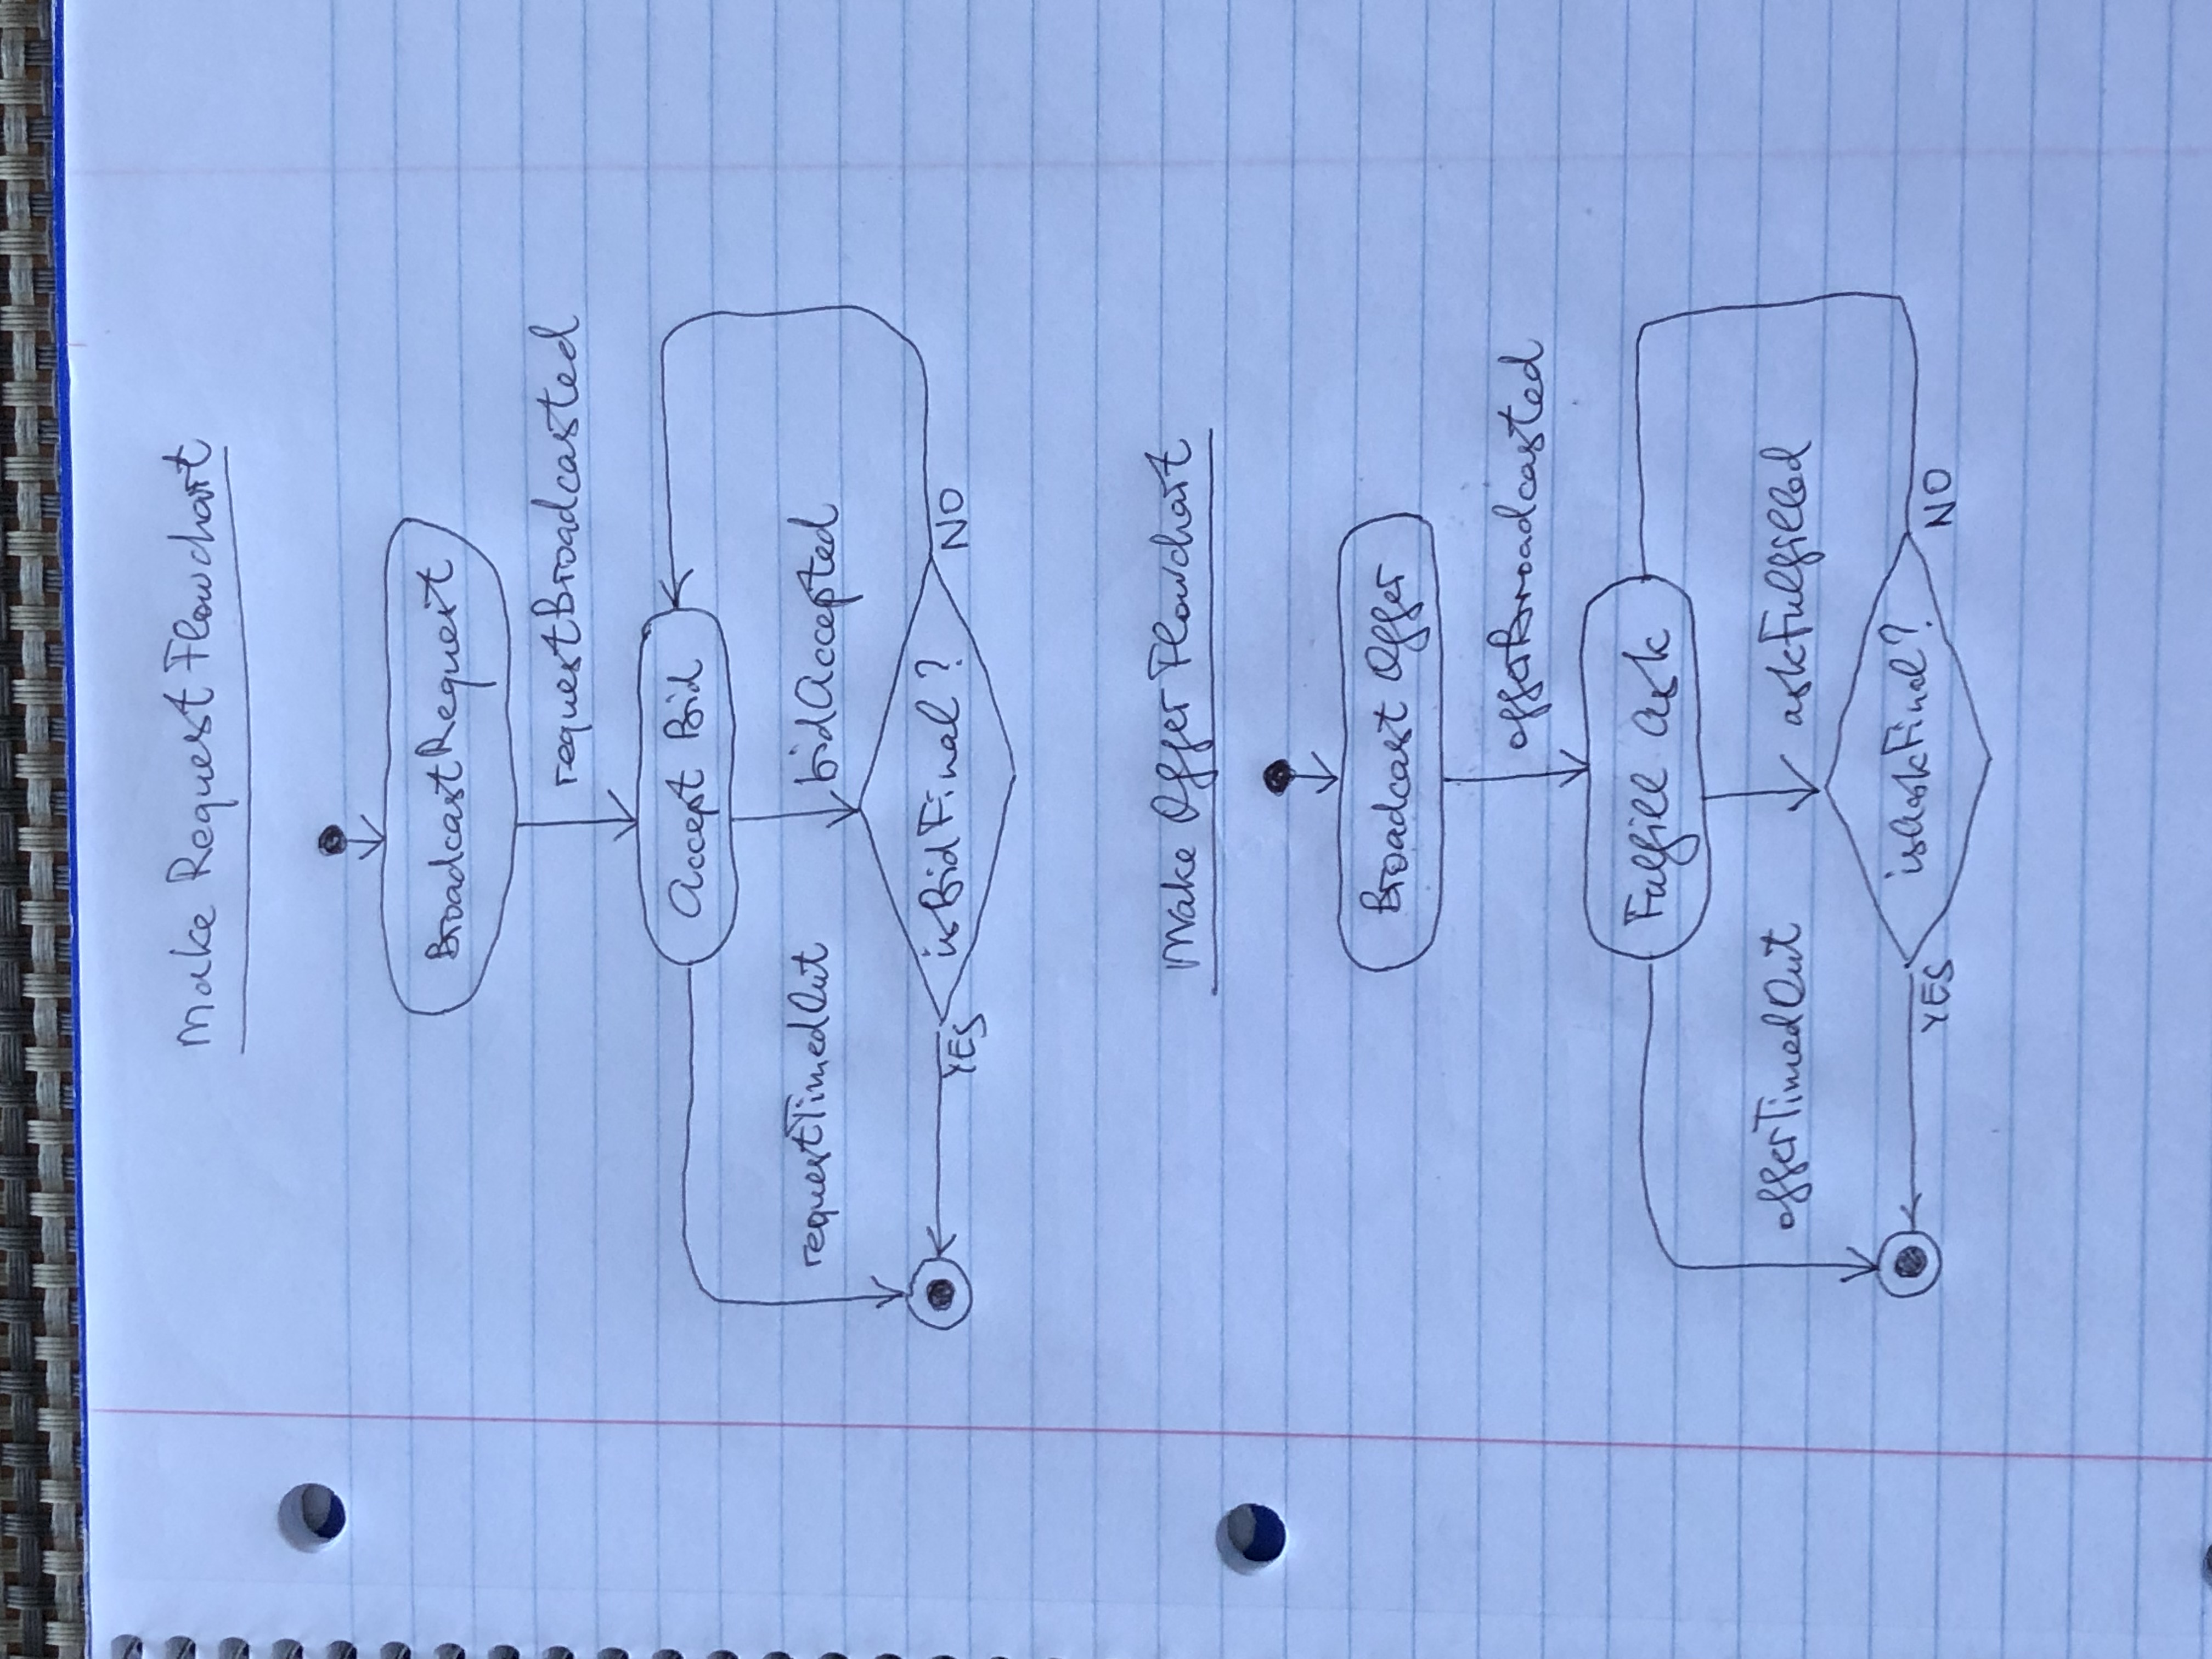 Make Request Flowchart
BroadcastRequest
requestBroadcasted
Accept Bid
requestTimedOut
bidAccepted
isBidFinal?
YES
NO
Make Offer Flowchart
Broadcast Offer
offerBroadcasted
Fulfill Ask
offerTimedOut
askFulfilled
isAskFinal?
YES
NO